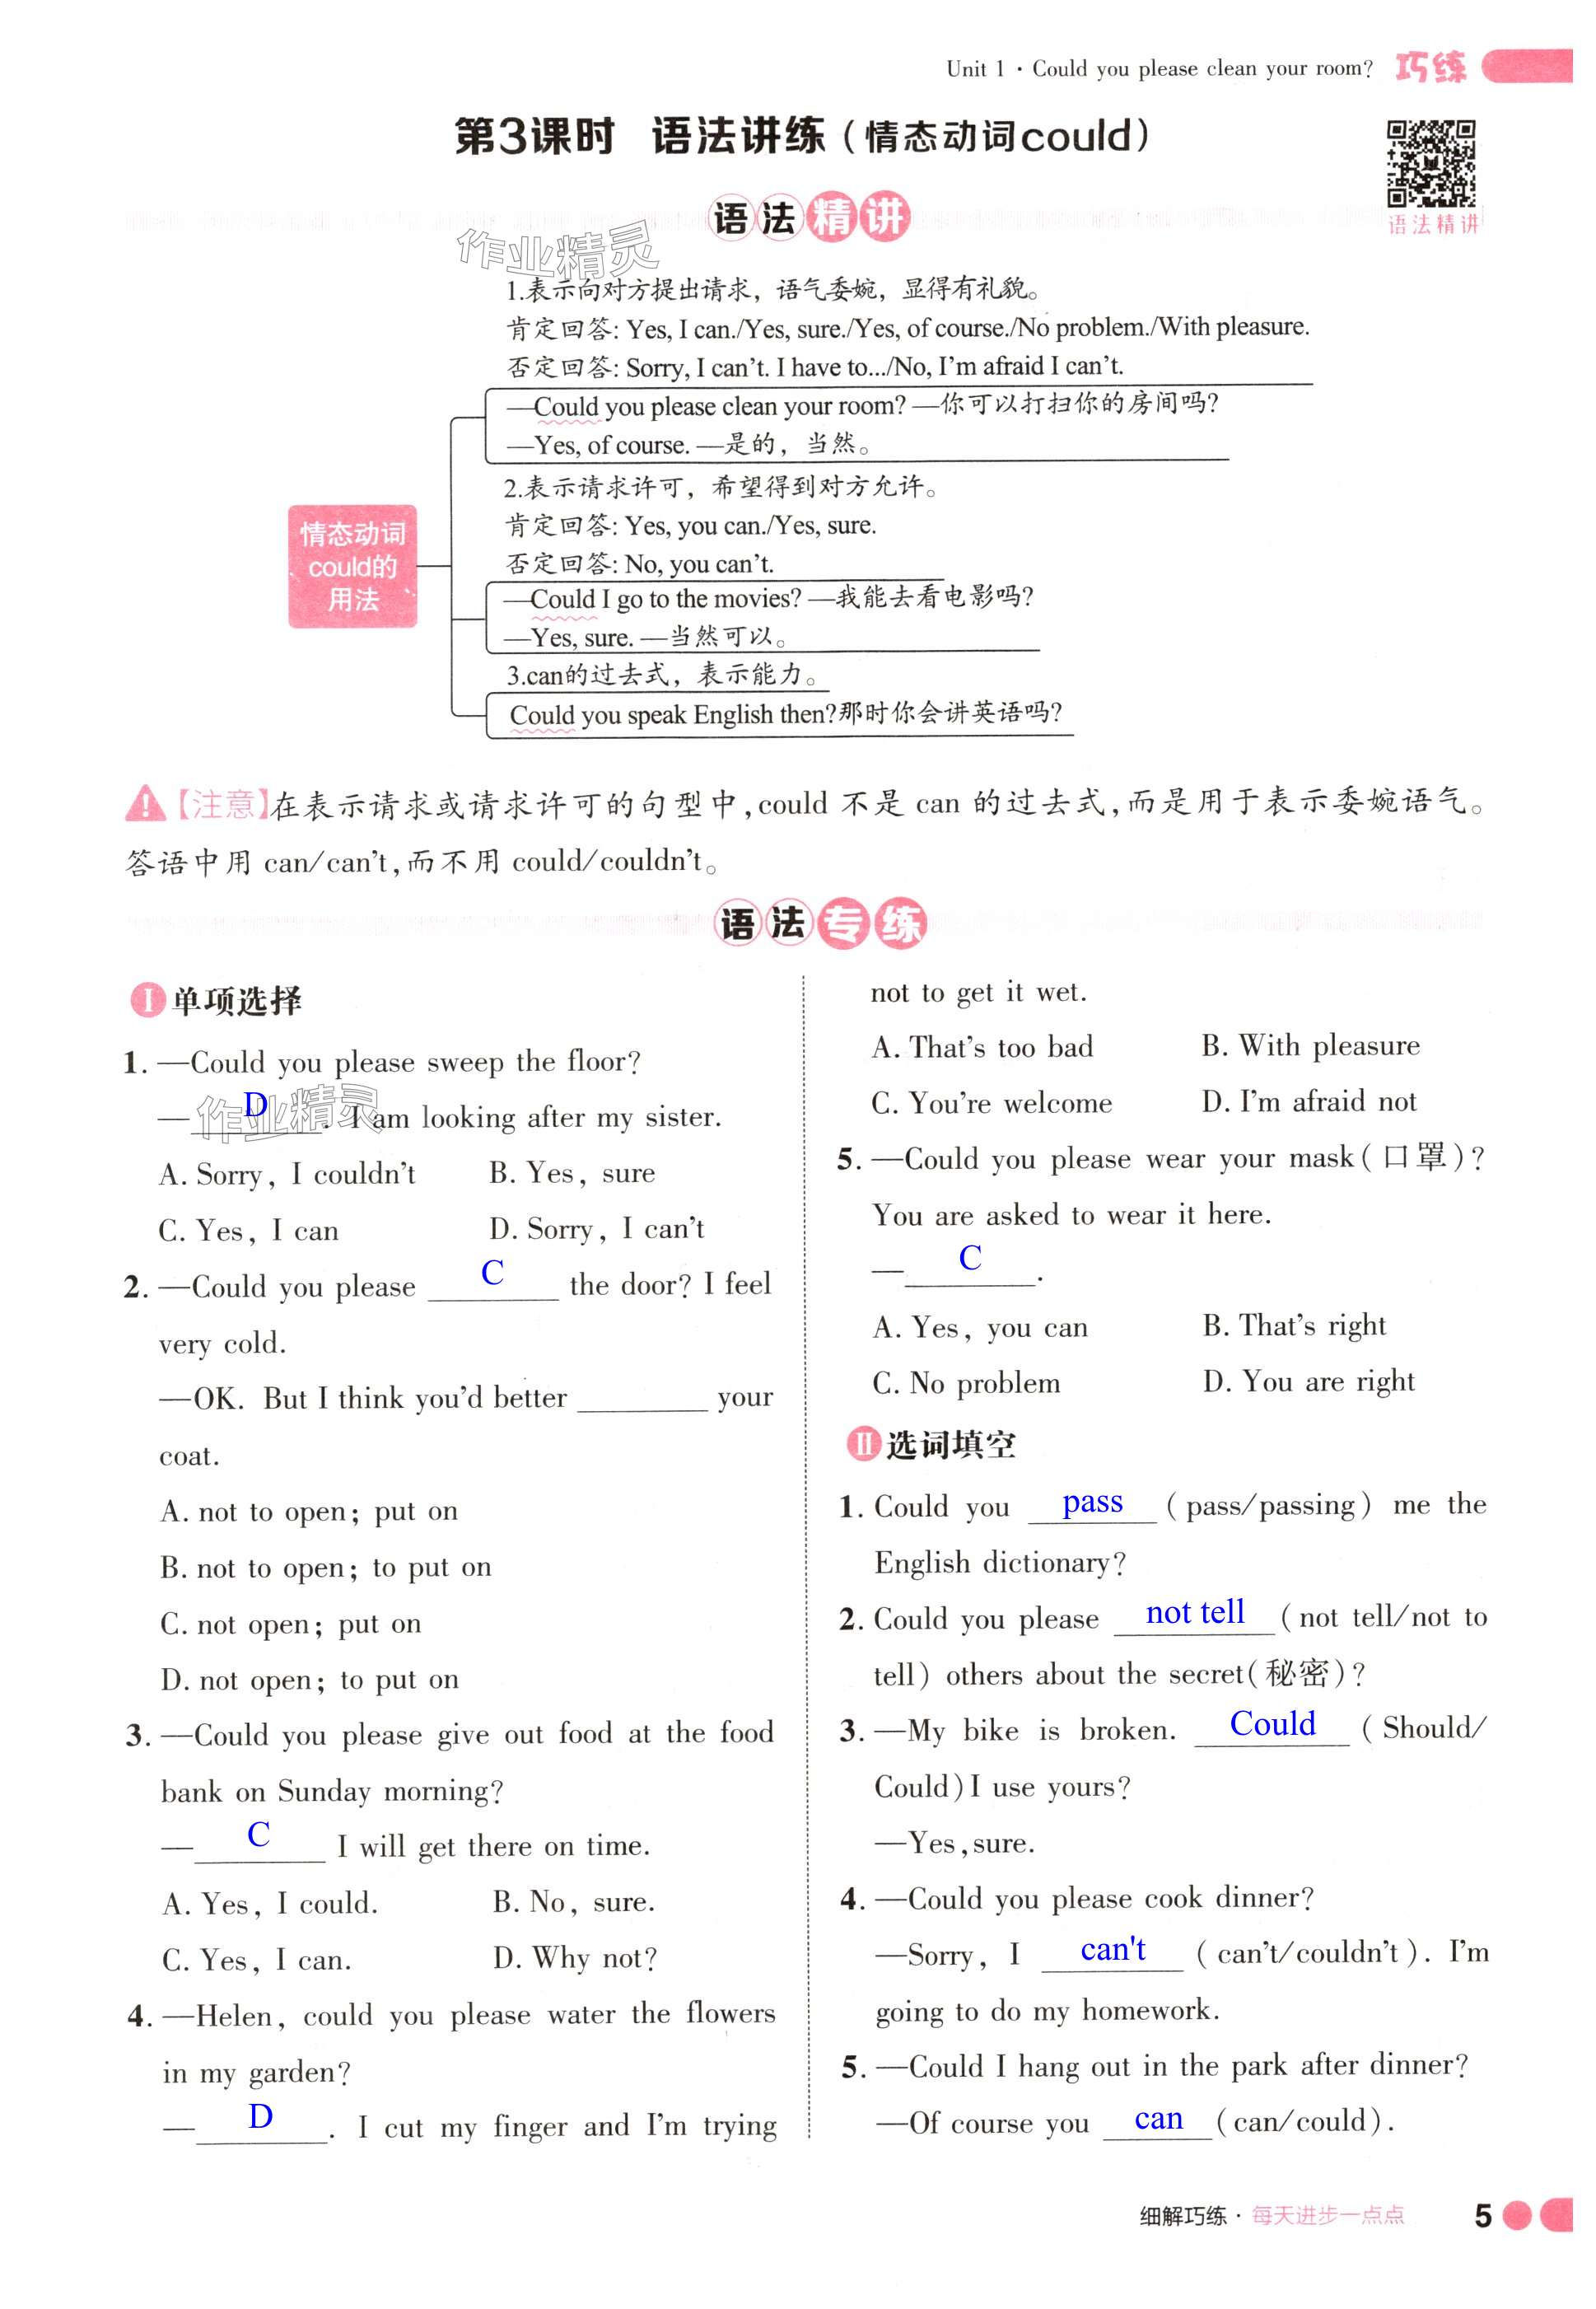 Unit 1 · Could you please clean your room? 巧练
第3课时 语法讲练（情态动词could）
语法精讲
语法精讲
作业精灵
1.表示向对方提出请求，语气委婉，显得有礼貌。
肯定回答: Yes, I can./Yes, sure./Yes, of course./No problem./With pleasure.
否定回答: Sorry, I can't. I have to.../No, I'm afraid I can't.
—Could you please clean your room? —你可以打扫你的房间吗?
—Yes, of course. —是的，当然。
2.表示请求许可，希望得到对方允许。
肯定回答: Yes, you can./Yes, sure.
否定回答: No, you can't.
—Could I go to the movies? —我能去看电影吗?
—Yes, sure. —当然可以。
3.can的过去式，表示能力。
Could you speak English then?那时你会讲英语吗?
情态动词
could的
用法
【注意】在表示请求或请求许可的句型中,could 不是 can 的过去式,而是用于表示委婉语气。
答语中用 can/can't,而不用 could/couldn't。
语法专练
Ⅰ 单项选择
1. —Could you please sweep the floor?
— D . I am looking after my sister.
作业精灵
A. Sorry, I couldn't B. Yes, sure
C. Yes, I can D. Sorry, I can't
2. —Could you please C the door? I feel
very cold.
—OK. But I think you'd better ________ your
coat.
A. not to open; put on
B. not to open; to put on
C. not open; put on
D. not open; to put on
3. —Could you please give out food at the food
bank on Sunday morning?
— C I will get there on time.
A. Yes, I could. B. No, sure.
C. Yes, I can. D. Why not?
4. —Helen, could you please water the flowers
in my garden?
— D . I cut my finger and I'm trying
not to get it wet.
A. That's too bad B. With pleasure
C. You're welcome D. I'm afraid not
5. —Could you please wear your mask(口罩)?
You are asked to wear it here.
— C .
A. Yes, you can B. That's right
C. No problem D. You are right
Ⅱ 选词填空
1. Could you pass (pass/passing) me the
English dictionary?
2. Could you please not tell (not tell/not to
tell) others about the secret(秘密)?
3. —My bike is broken. Could (Should/
Could)I use yours?
—Yes,sure.
4. —Could you please cook dinner?
—Sorry, I can't (can't/couldn't). I'm
going to do my homework.
5. —Could I hang out in the park after dinner?
—Of course you can (can/could).
细解巧练·每天进步一点点 5